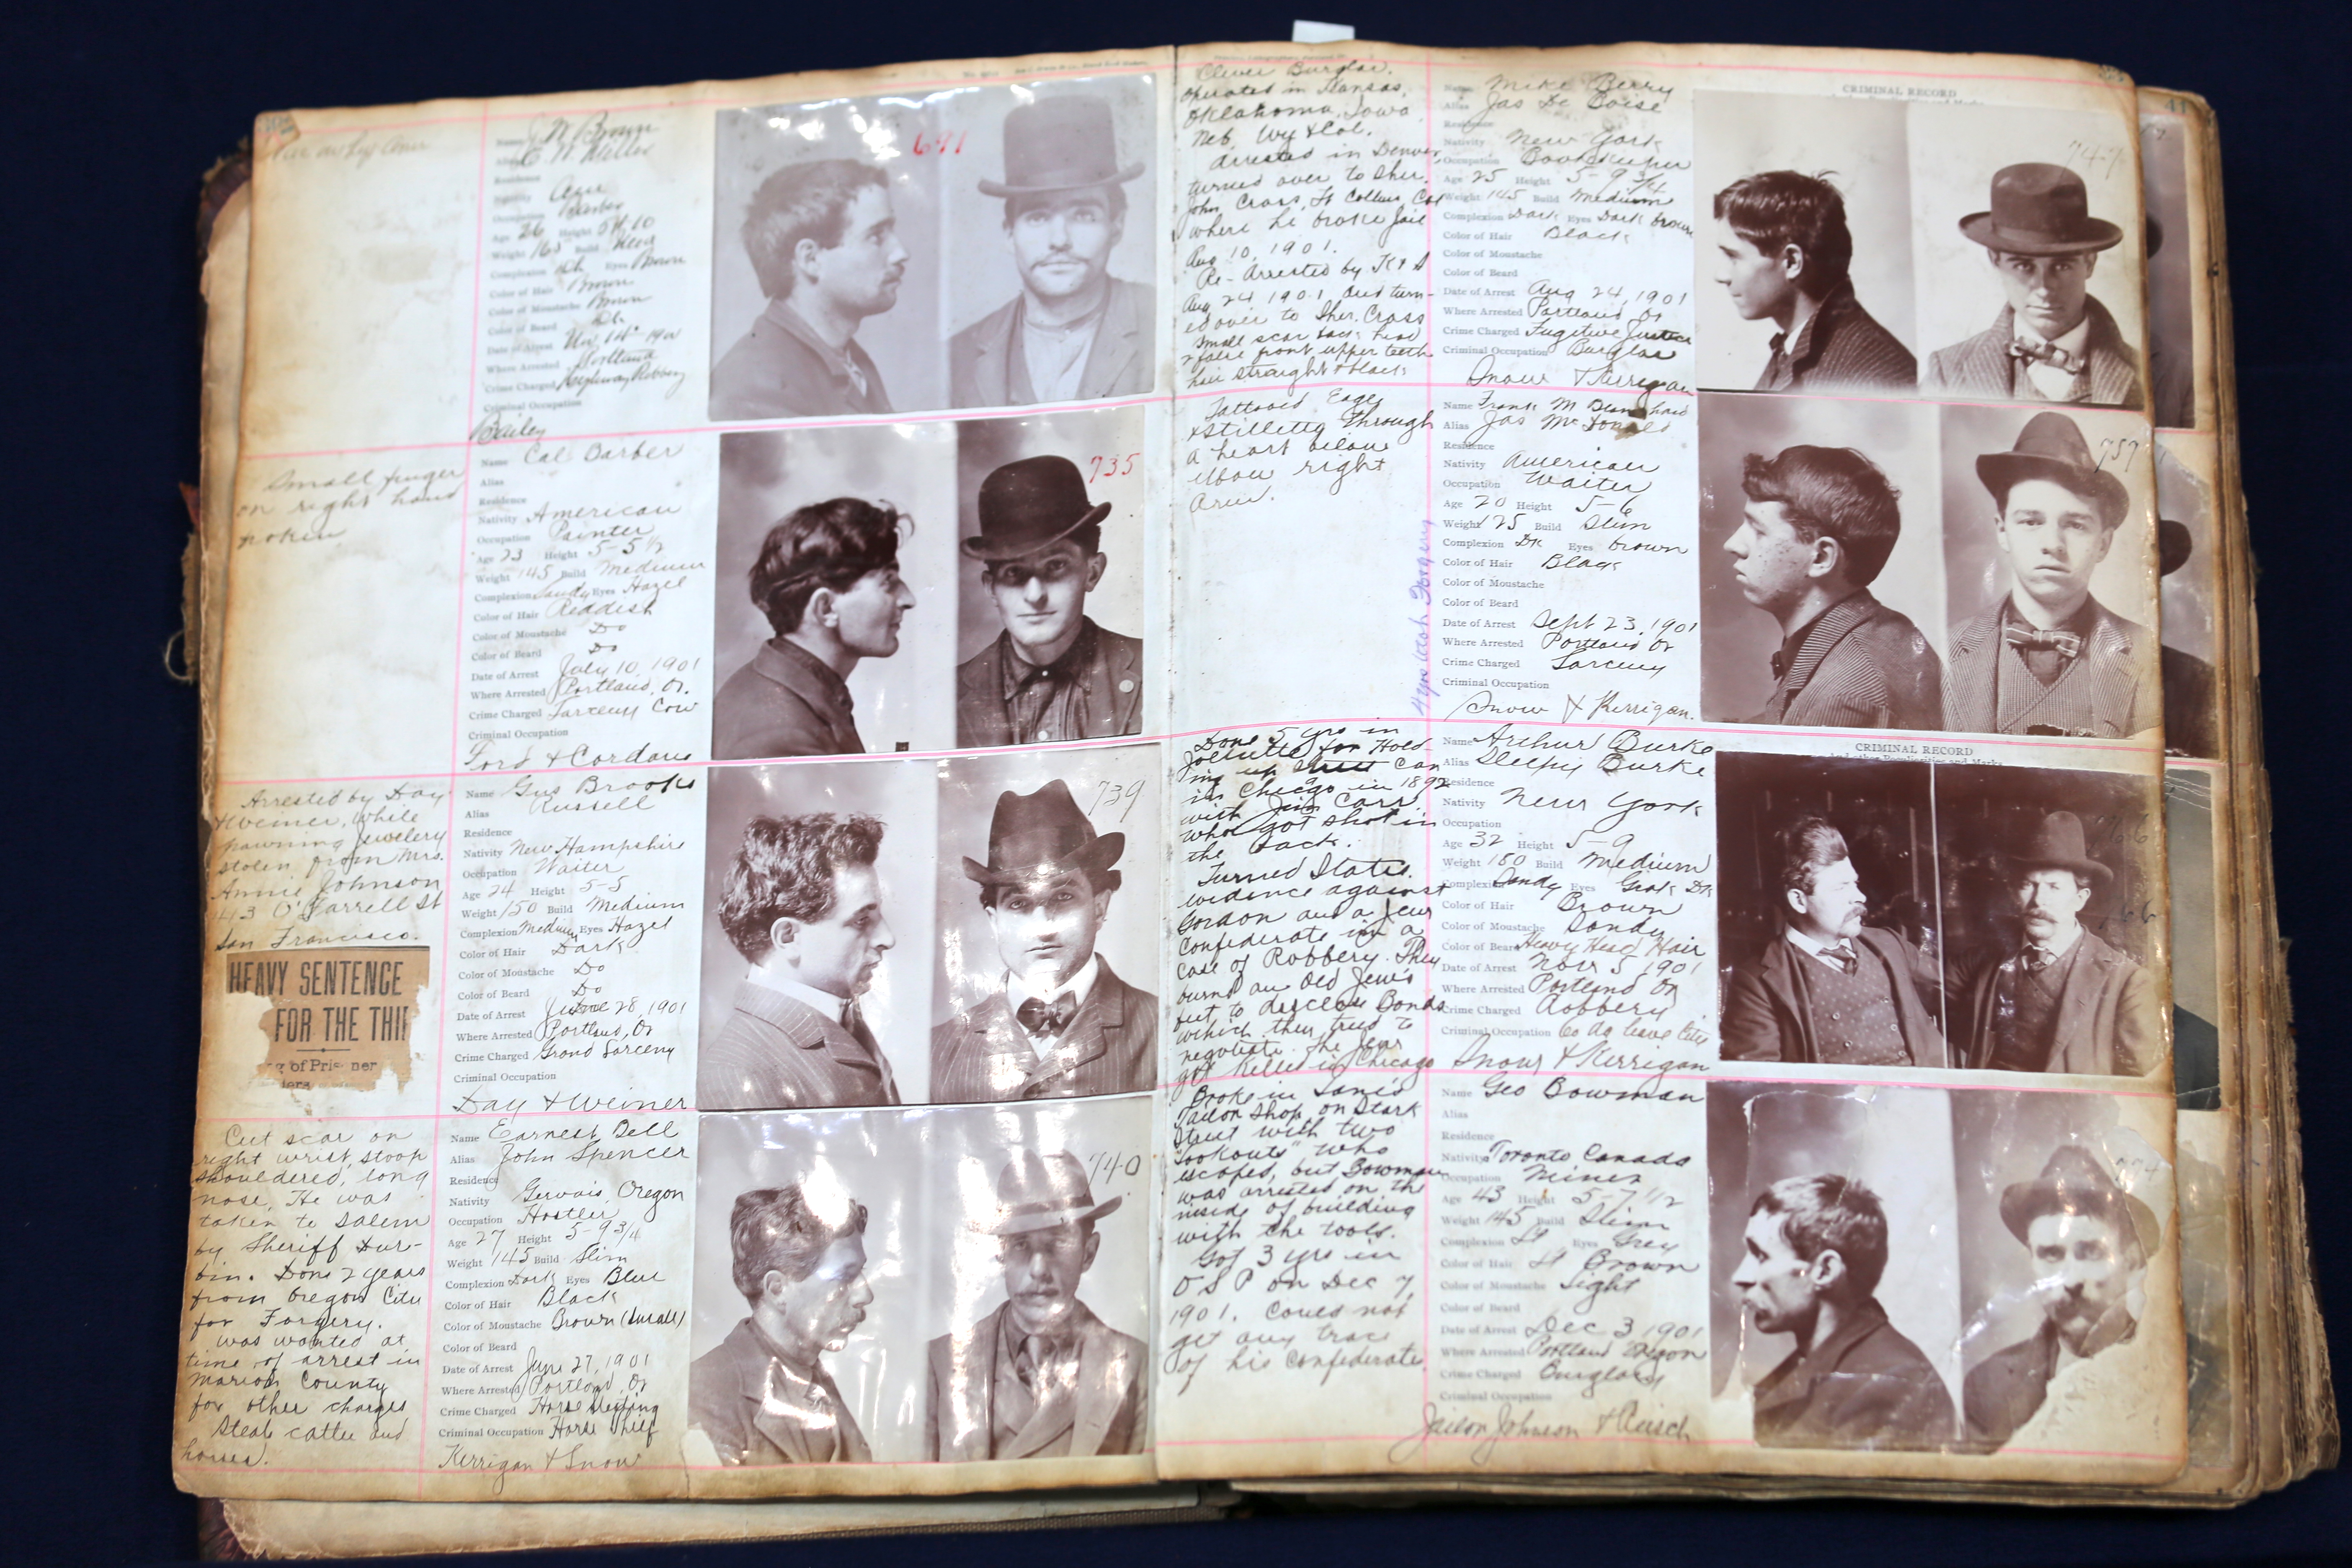 J N Brown
Alias C W Miller
Residence
Occupation Barber
Age 26 Height 5ft 10
Weight 163 Build Med
Complexion Dk Eyes Brown
Color of Hair Brown
Color of Moustache Brown
Color of Beard Dk
Date of Arrest
Where Arrested Portland
Crime Charged Highway Robbery
Criminal Occupation
Bailey
691
Small finger
on right hand
Name Cal Barber
Alias
Residence
Nativity American
Occupation Painter
Age 23 Height 5-5 1/2
Weight 145 Build Medium
Complexion Sandy Eyes Hazel
Color of Hair Reddish
Color of Moustache Do
Color of Beard Do
Date of Arrest July 10, 1901
Where Arrested Portland, Or.
Crime Charged Larceny Cow
Criminal Occupation
Ford & Cordano
735
Arrested by Day
& Weiner, while
pawning Jewelery
stolen from Mrs.
Annie Johnson
43 O'Farrell St
San Francisco.
HEAVY SENTENCE
FOR THE THI
g of Pris ner
Name Gus Brooks
Alias Russell
Residence
Nativity New Hampshire
Occupation Waiter
Age 24 Height 5-5
Weight 150 Build Medium
Complexion Medium Eyes Hazel
Color of Hair Dark
Color of Moustache Do
Color of Beard Do
Date of Arrest June 28, 1901
Where Arrested Portland, Or
Crime Charged Grand Larceny
Criminal Occupation
Day & Weiner
739
Cut scar on
right wrist, stoop
shouldered, long
nose, He was
taken to Salem
by Sheriff Dur-
bin. Done 2 years
from Oregon City
for Forgery.
was wanted at
time of arrest in
Marion County
for other charges
Steals cattle and
horses.
Name Earnest Bell
Alias John Spencer
Residence
Nativity Gervais, Oregon
Occupation Hostler
Age 27 Height 5-9 3/4
Weight 145 Build Slim
Complexion Dark Eyes Blue
Color of Hair Black
Color of Moustache Brown (small)
Color of Beard
Date of Arrest June 27, 1901
Where Arrested Portland, Or
Crime Charged Horse Stealing
Criminal Occupation Horse Thief
Kerrigan & Snow
740
Clever Burglar.
operated in Kansas,
Oklahoma, Iowa
Neb, Wy & Col.
Arrested in Denver,
turned over to Sher.
John Cross, Ft Collins, Col
where he broke Jail
Aug 10, 1901.
Re-Arrested by K & S
Aug 24 1901 and turn-
ed over to Sher. Cross
Small scar back head
2 false front upper teeth
hair straight & black
Name Mike Berry
Alias Jas De Boise
Residence
Nativity New York
Occupation Bookkeeper
Age 25 Height 5-9 3/4
Weight 145 Build Medium
Complexion Dark Eyes Dark brown
Color of Hair Black
Color of Moustache
Color of Beard
Date of Arrest Aug 24, 1901
Where Arrested Portland Or
Crime Charged Fugitive Justice
Criminal Occupation Burglar
Snow & Kerrigan
CRIMINAL RECORD
747
Tattooed Eagle
& Stilletto through
a heart below
elbow right
Arm.
Forgery
Name Frank M Blanchard
Alias Jas McDonald
Residence
Nativity American
Occupation Waiter
Age 20 Height 5-6
Weight 125 Build Slim
Complexion Dk Eyes brown
Color of Hair Black
Color of Moustache
Color of Beard
Date of Arrest Sept 23, 1901
Where Arrested Portland Or
Crime Charged Larceny
Criminal Occupation
Snow & Kerrigan.
757
Done 5 yrs in
Jolliette for Hold-
ing up street Car
in Chicgo in 1892
with Jim Carr.
who got shot in
the back.
Turned States
evidence against
Gordon and a Jew
Confederate in a
case of Robbery. They
burnt an Old Jew's
feet to disclose Bonds
which they tried to
negotiate. The Jew
got killed in Chicago
Name Arthur Burke
Alias Sleepy Burke
Residence
Nativity New York
Occupation
Age 32 Height 5-9
Weight 150 Build Medium
Complexion Sandy Eyes
Color of Hair Brown
Color of Moustache Sandy
Color of Beard Heavy Head Hair
Date of Arrest Nov 5, 1901
Where Arrested Portland Or
Crime Charged Robbery
Criminal Occupation
Snow & Kerrigan
CRIMINAL RECORD
Broke in
Tailor Shop on Stark
Street with two
"Lookouts" who
escaped, but Bowman
was arrested on the
inside of building
with the tools.
Got 3 yrs in
O S P on Dec 7,
1901. Could not
get any trace
of his Confederate
Name Geo Bowman
Alias
Residence
Nativity Toronto Canada
Occupation Miner
Age 43 Height 5-7 1/2
Weight 145 Build Slim
Complexion Lt Eyes Grey
Color of Hair Lt Brown
Color of Moustache Light
Color of Beard
Date of Arrest Dec 3 1901
Where Arrested Portland Oregon
Crime Charged Burglary
Criminal Occupation
Johnson &
41